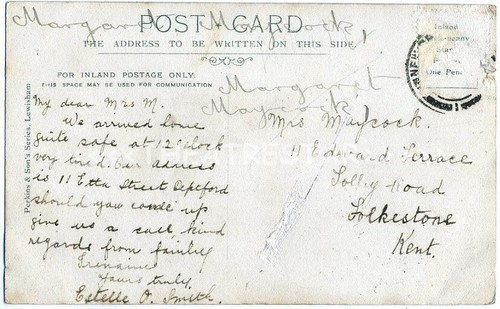 Margaret Maycock,
POST CARD
THE ADDRESS TO BE WRITTEN ON THIS SIDE
Inland
Half-penny
Stamp
One Penny
Margaret
Maycock,
FOR INLAND POSTAGE ONLY.
THIS SPACE MAY BE USED FOR COMMUNICATION
Perkins & Son's Series, Lewisham
My dear Mrs M.
We arrived home
quite safe at 12 o'clock
very tired. Our adress
is 11 Etta Street Deptford
should you come up
give us a call kind
regards from family
Yours truly,
Estelle O. Smith.
Mrs Maycock.
11 Edward Terrace
Folly Road
Folkestone
Kent.